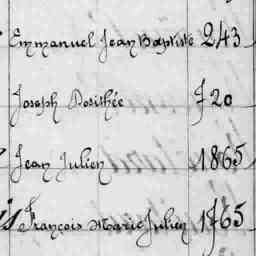 Emmanuel Jean Baptiste 243
Joseph Dosithée 720
Jean Julien 1865
François Marie Julien 1765